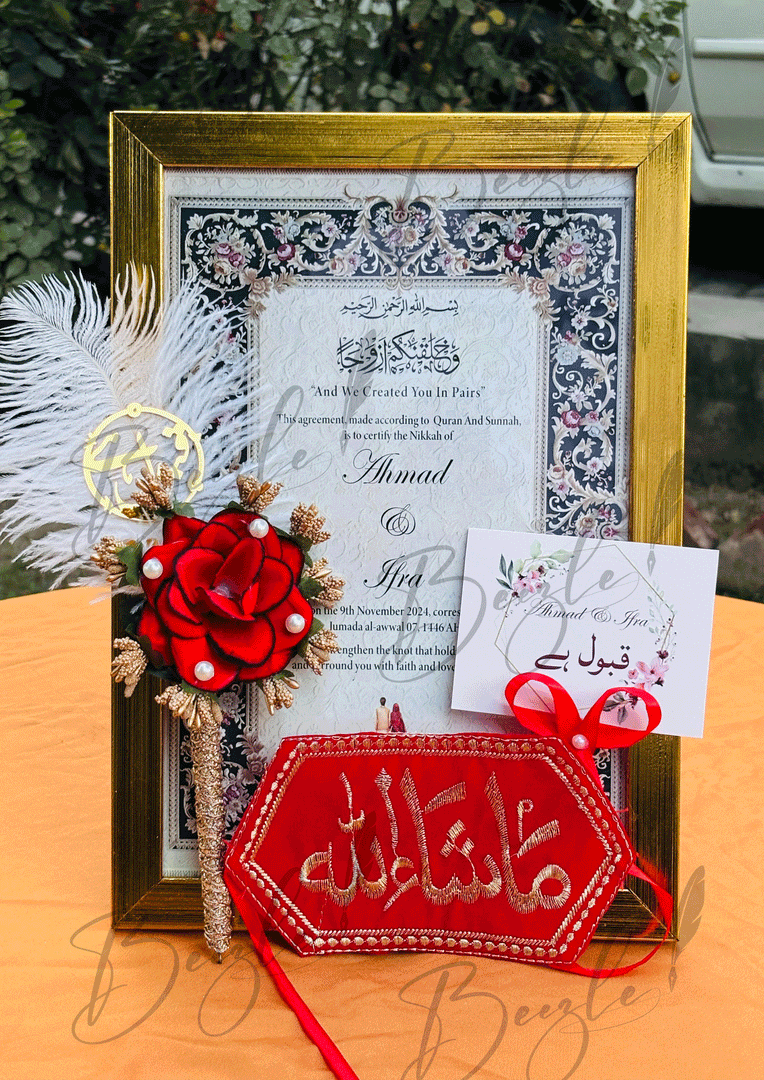 بِسْمِ اللهِ الرَّحْمٰنِ الرَّحِيْمِ
وَخَلَقْنٰكُمْ اَزْوَاجًا
“And We Created You In Pairs”
This agreement, made according to Quran And Sunnah,
is to certify the Nikkah of
Ahmad
&
Ifra
on the 9th November 2024,
Jumada al-awwal 07, 1446
the knot that
you with faith and
Ahmad & Ifra
قبول ہے
مَاشَاءَاللّٰه
Beezle
Beezle
Beezle
Beezle
Beezle
Beezle